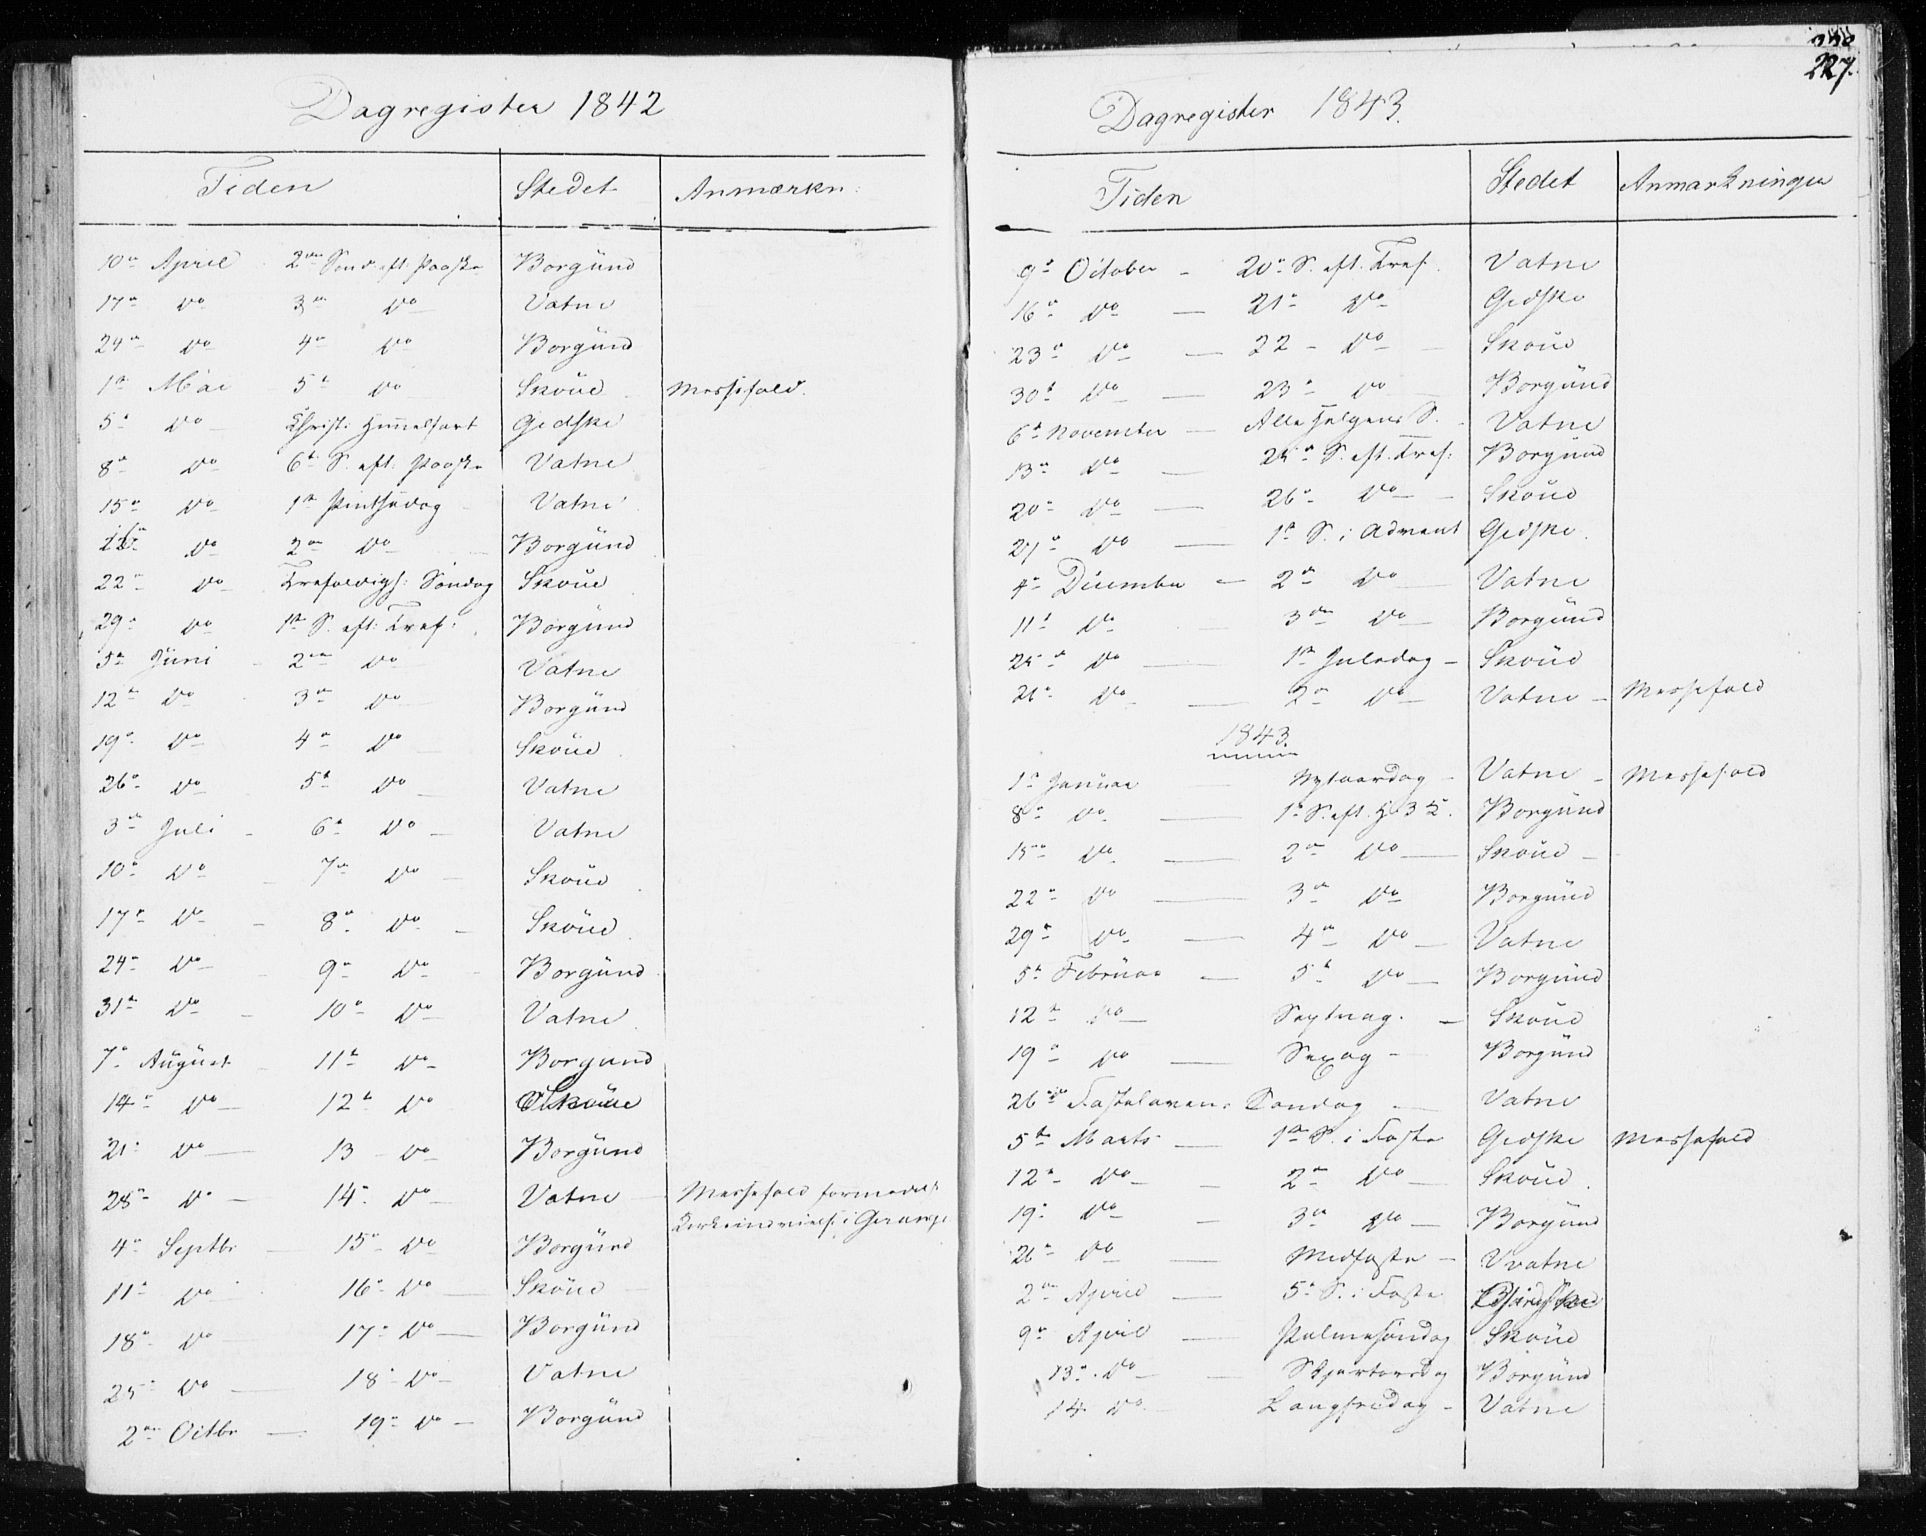 Dagregister 1842
Tiden Stedet Anmærkn:
10de April 2den Sønd. eft. Paaske Borgund
17de do 3die do Vatne
24de do 4de do Borgund
1ste Mai 5te do Skoue Messefald.
5te do Christi Himmelfart Gidske
8de do 6te S. eft. Paaske Vatne
15de do 1ste Pintsedag Vatne
16de do 2den do Borgund
22de do Trefoldigh: Søndag Skoue
29de do 1ste S. eft. Tref: Borgund
5te Juni 2den do Vatne
12te do 3die do Borgund
19de do 4de do Skoue
26de do 5te do Vatne
3die Juli 6te do Vatne
10de do 7de do Skoue
17de do 8de do Skoue
24de do 9de do Borgund
31te do 10de do Vatne
7de August 11te do Borgund
14de do 12te do Skoue
21de do 13 do Borgund
28de do 14de do Vatne Messefald formedelst
Kirkeindvielse i
4de Septbr 15de do Borgund
11te do 16de do Skoue
18de do 17de do Borgund
25de do 18de do Vatne
2den Octbr 19de do Borgund
227.
Dagregister 1843.
Tiden Stedet Anmærkninger
9de October 20de S. eft. Tref. Vatne
16de do 21de do Gidske
23de do 22 do Skoue
30te do 23de do Borgund
6te November Alle Helgens S. Vatne
13de do 25de S. eft. Tref: Borgund
20de do 26de do Skoue
27de do 1ste S. i Advent Gidske.
4de December 2den do Vatne
11te do 3die do Borgund
25de do 1ste Juledag Skoue
26de do 2den do Vatne Messefald
1843
1ste Januar Nytaarsdag Vatne Messefald
8de do 1ste S. eft. H. 3 K. Borgund
15de do 2den do Skoue
22de do 3die do Borgund
29de do 4de do Vatne
5te Februar 5te do Borgund
12te do Septuag. Skoue
19de do Sexag Borgund
26de Fastelavens Søndag Vatne
5te Marts 1ste S. i Faste Gidske Messefald
12te do 2den do Skoue
19de do 3die do Borgund
26de do Midfaste Vvatne
2den April 5te S. i Faste
9de April Palmesøndag Skoue
13de do Skjertorsdag Borgund
14 do Langfredag Vatne